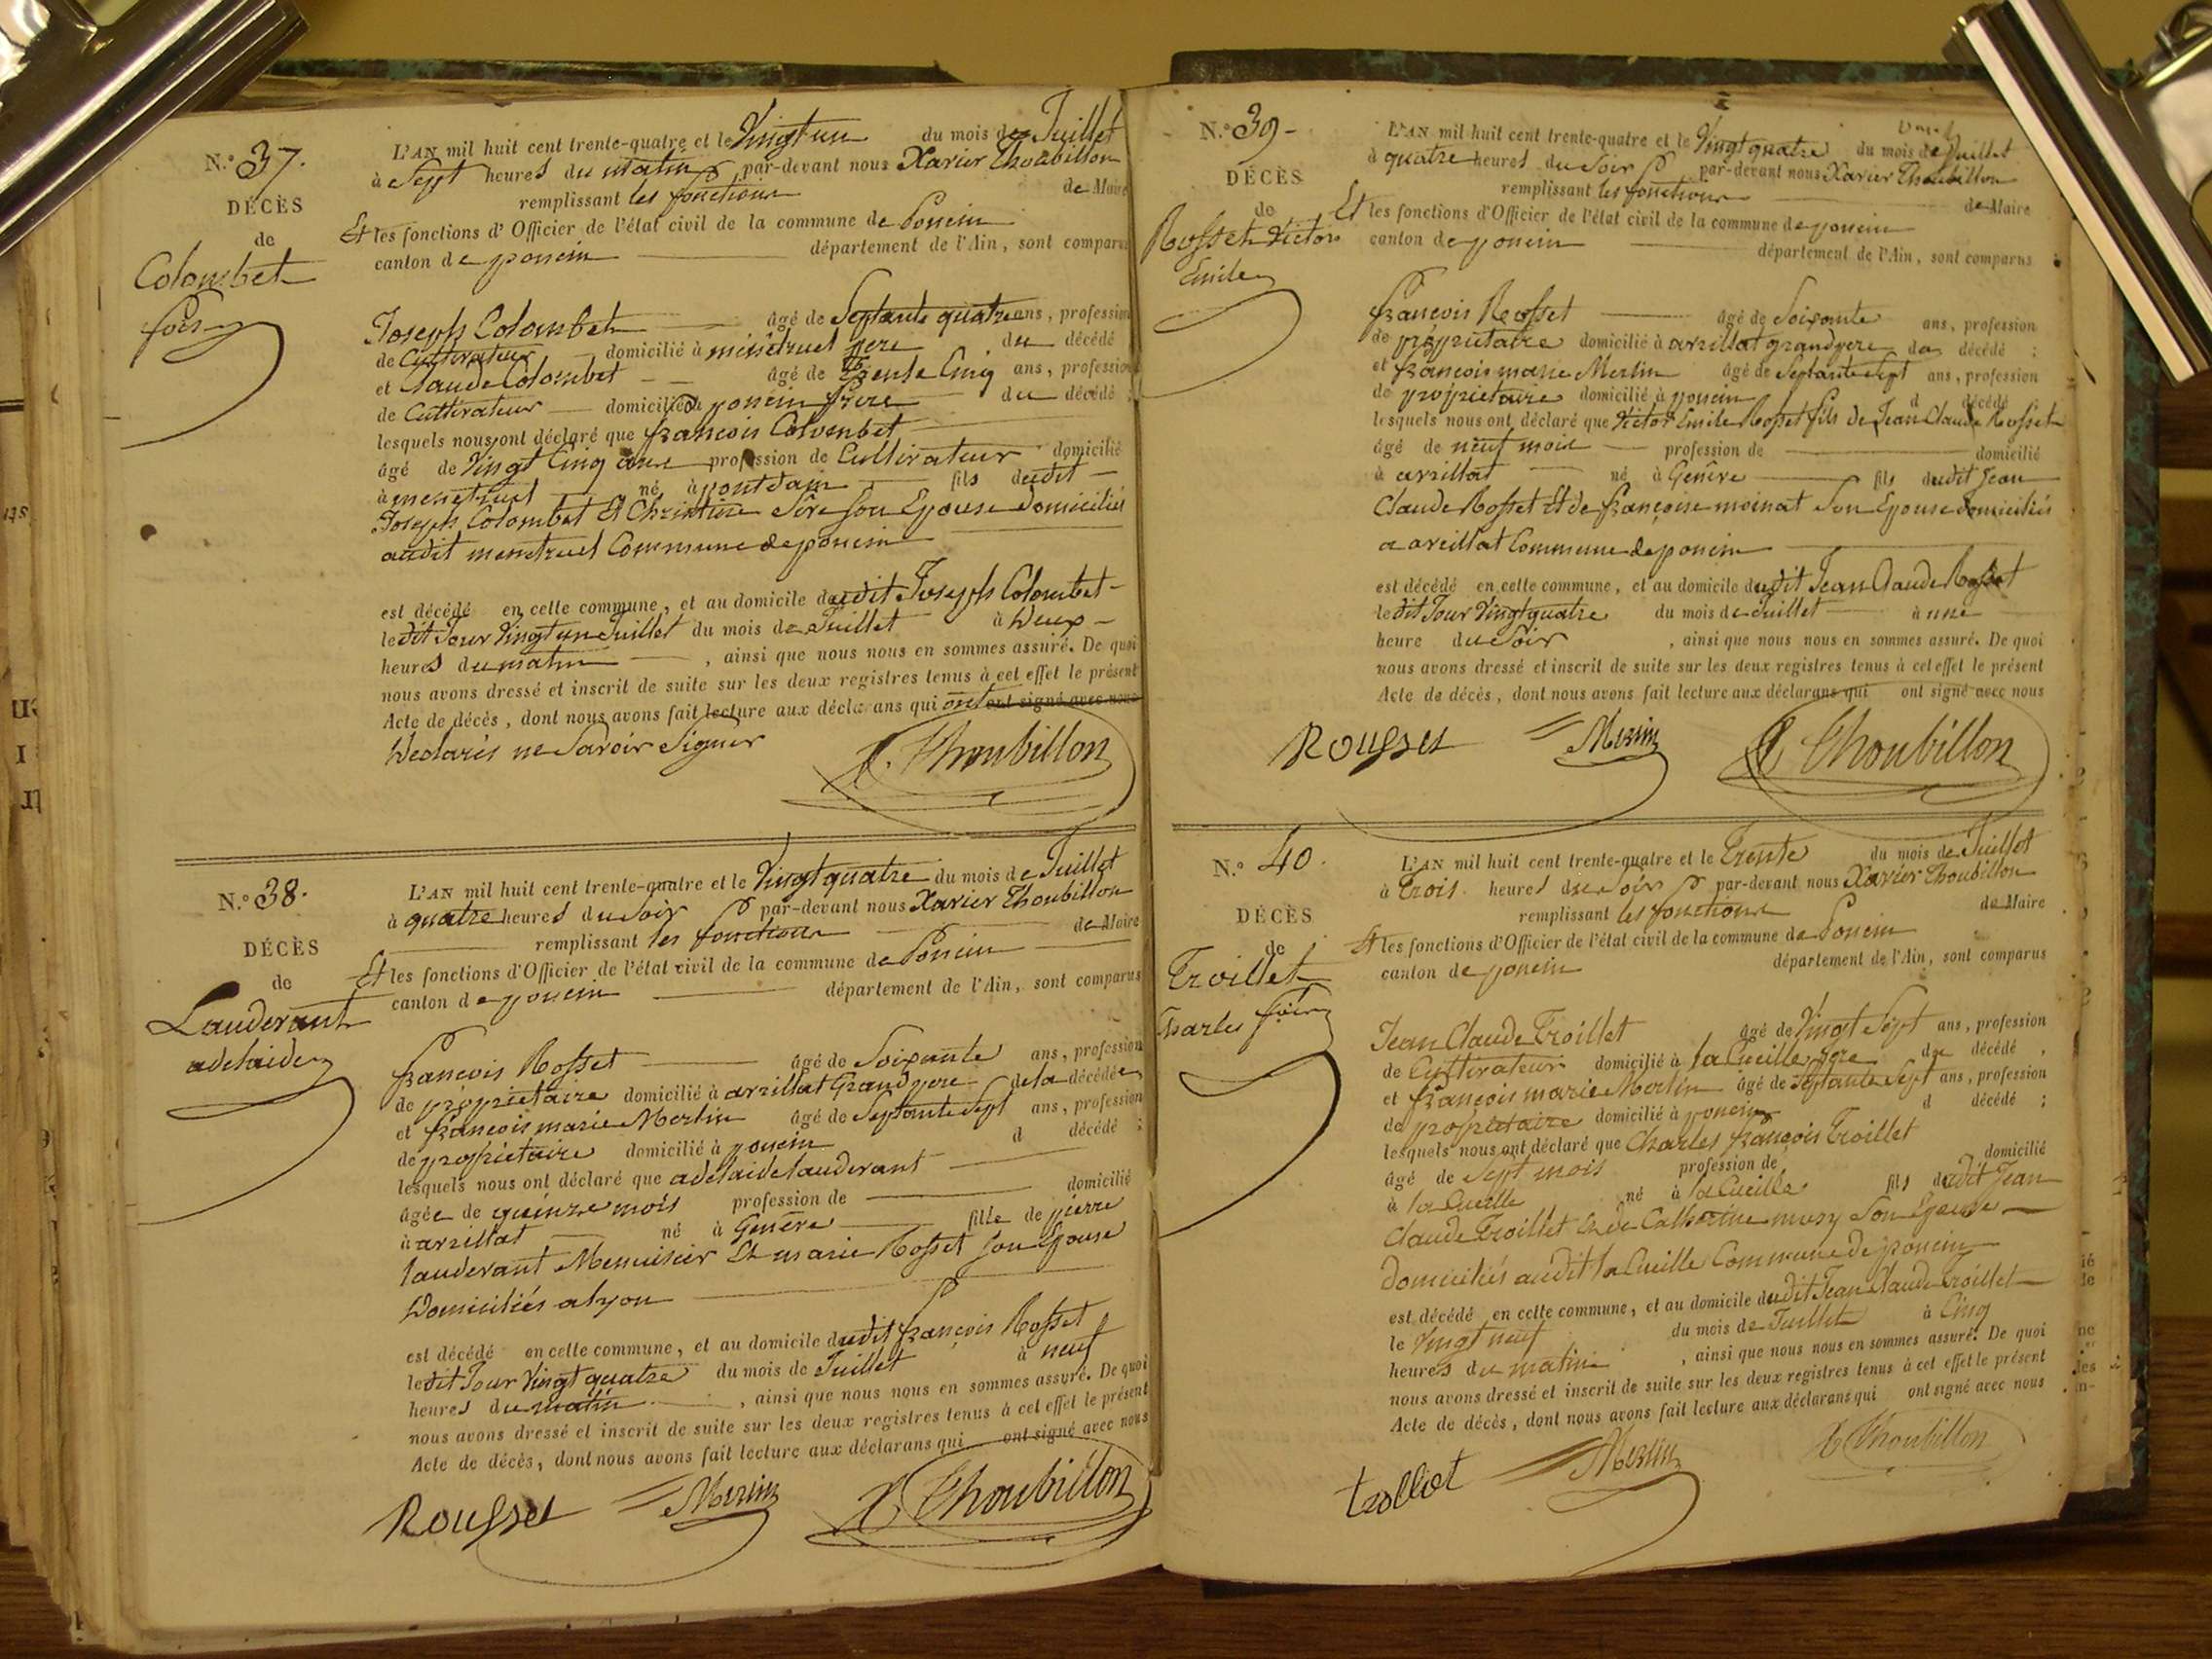 N.° 37.
DÉCÈS
de
Colombet
fois
L'AN mil huit cent trente-quatre et le Vingt un du mois de Juillet
à Sept heures du matin par-devant nous Xavier Thoubillon
remplissant les fonctions de Maire
Et les fonctions d'Officier de l'état civil de la commune de Poncin
canton de poncin département de l'Ain, sont comparus
Joseph Colombet âgé de Septante quatre ans, profession
de Cultivateur domicilié à menétruel pere du décédé
et Claude Colombet âgé de Trente Cinq ans, profession
de Cultivateur domicilié à poncin frere du décédé ;
lesquels nous ont déclaré que françois Colombet
âgé de Vingt Cinq ans profession de Cultivateur domicilié
à menetruel né à pontdain fils dudit
Joseph Colombet Et Christine Sère Son Epouse domiciliés
audit menetruel Commune de poncin
est décédé en cette commune, et au domicile dudit Joseph Colombet
le dit Jour Vingt un Juillet du mois de Juillet à Deux
heures du matin , ainsi que nous nous en sommes assuré. De quoi
nous avons dressé et inscrit de suite sur les deux registres tenus à cet effet le présent
Acte de décès, dont nous avons fait lecture aux déclarans qui ont ont signé avec nous
Declarés ne Savoir Signer
X. Thoubillon
N.° 38.
DÉCÈS
de
Lauderant
adelaide
L'AN mil huit cent trente-quatre et le Vingt quatre du mois de Juillet
à quatre heures du Soir par-devant nous Xavier Thoubillon
remplissant les fonctions de Maire
Et les fonctions d'Officier de l'état civil de la commune de Poncin
canton de poncin département de l'Ain, sont comparus
françois Rosset âgé de Soixante ans, profession
de propriétaire domicilié à arzillat Grand pere dela décédée,
et françois marie Merlin âgé de Septante Sept ans, profession
de propriétaire domicilié à poncin d décédé ;
lesquels nous ont déclaré que adelaide lauderant
âgée de quinze mois profession de domicilié
à arzillat né à Genève fille de pierre
lauderant Menuisier Et marie Rosset Son Epouse
Domiciliés a lyon
est décédé en cette commune, et au domicile dudit françois Rosset
le dit Jour Vingt quatre du mois de Juillet à neuf
heures du matin , ainsi que nous nous en sommes assuré. De quoi
nous avons dressé et inscrit de suite sur les deux registres tenus à cet effet le présent
Acte de décès, dont nous avons fait lecture aux déclarans qui ont signé avec nous
Rousset Merlin X Thoubillon
N.° 39
DÉCÈS
de
Rosset Victor
Emile
L'AN mil huit cent trente-quatre et le Vingt quatre du mois de Juillet
à quatre heures du Soir par-devant nous Xavier Thoubillon
remplissant les fonctions de Maire
Et les fonctions d'Officier de l'état civil de la commune de poncin
canton de poncin département de l'Ain, sont comparus
françois Rosset âgé de Soixante ans, profession
de propriétaire domicilié à arzillat grand pere du décédé ;
et françois marie Merlin âgé de Septante Sept ans, profession
de propriétaire domicilié à poncin d décédé
lesquels nous ont déclaré que Victor Emile Rosset fils de Jean Claude Rosset
âgé de neuf mois profession de domicilié
à arzillat né à Genève fils dudit Jean
Claude Rosset Et de françoise moinat Son Epouse domiciliés
a arzillat Commune de poncin
est décédé en cette commune, et au domicile dudit Jean Claude Rosset
le dit Jour Vingt quatre du mois de Juillet à une
heure du Soir , ainsi que nous nous en sommes assuré. De quoi
nous avons dressé et inscrit de suite sur les deux registres tenus à cet effet le présent
Acte de décès, dont nous avons fait lecture aux déclarans qui ont signé avec nous
Rousset Merlin X Thoubillon
N.° 40.
DÉCÈS
de
Troillet
Charles fois
L'AN mil huit cent trente-quatre et le Trente du mois de Juillet
à Trois heures du Soir par-devant nous Xavier Thoubillon
remplissant les fonctions de Maire
Et les fonctions d'Officier de l'état civil de la commune de Poncin
canton de poncin département de l'Ain, sont comparus
Jean Claude Troillet âgé de Vingt Sept ans, profession
de Cultivateur domicilié à la Cueille pere du décédé ,
et françois marie Merlin âgé de Septante Sept ans, profession
de propriétaire domicilié à poncin d décédé ;
lesquels nous ont déclaré que Charles françois Troillet
âgé de Sept mois profession de domicilié
à la Cueille né à la Cueille fils dudit Jean
Claude Troillet Et de Catherine musy Son Epouse
Domiciliés audit la Cueille Commune de poncin
est décédé en cette commune, et au domicile dudit Jean Claude Troillet
le Vingt neuf du mois de Juillet à Cinq
heures du matin , ainsi que nous nous en sommes assuré. De quoi
nous avons dressé et inscrit de suite sur les deux registres tenus à cet effet le présent
Acte de décès, dont nous avons fait lecture aux déclarans qui ont signé avec nous
trolliet Merlin X Thoubillon